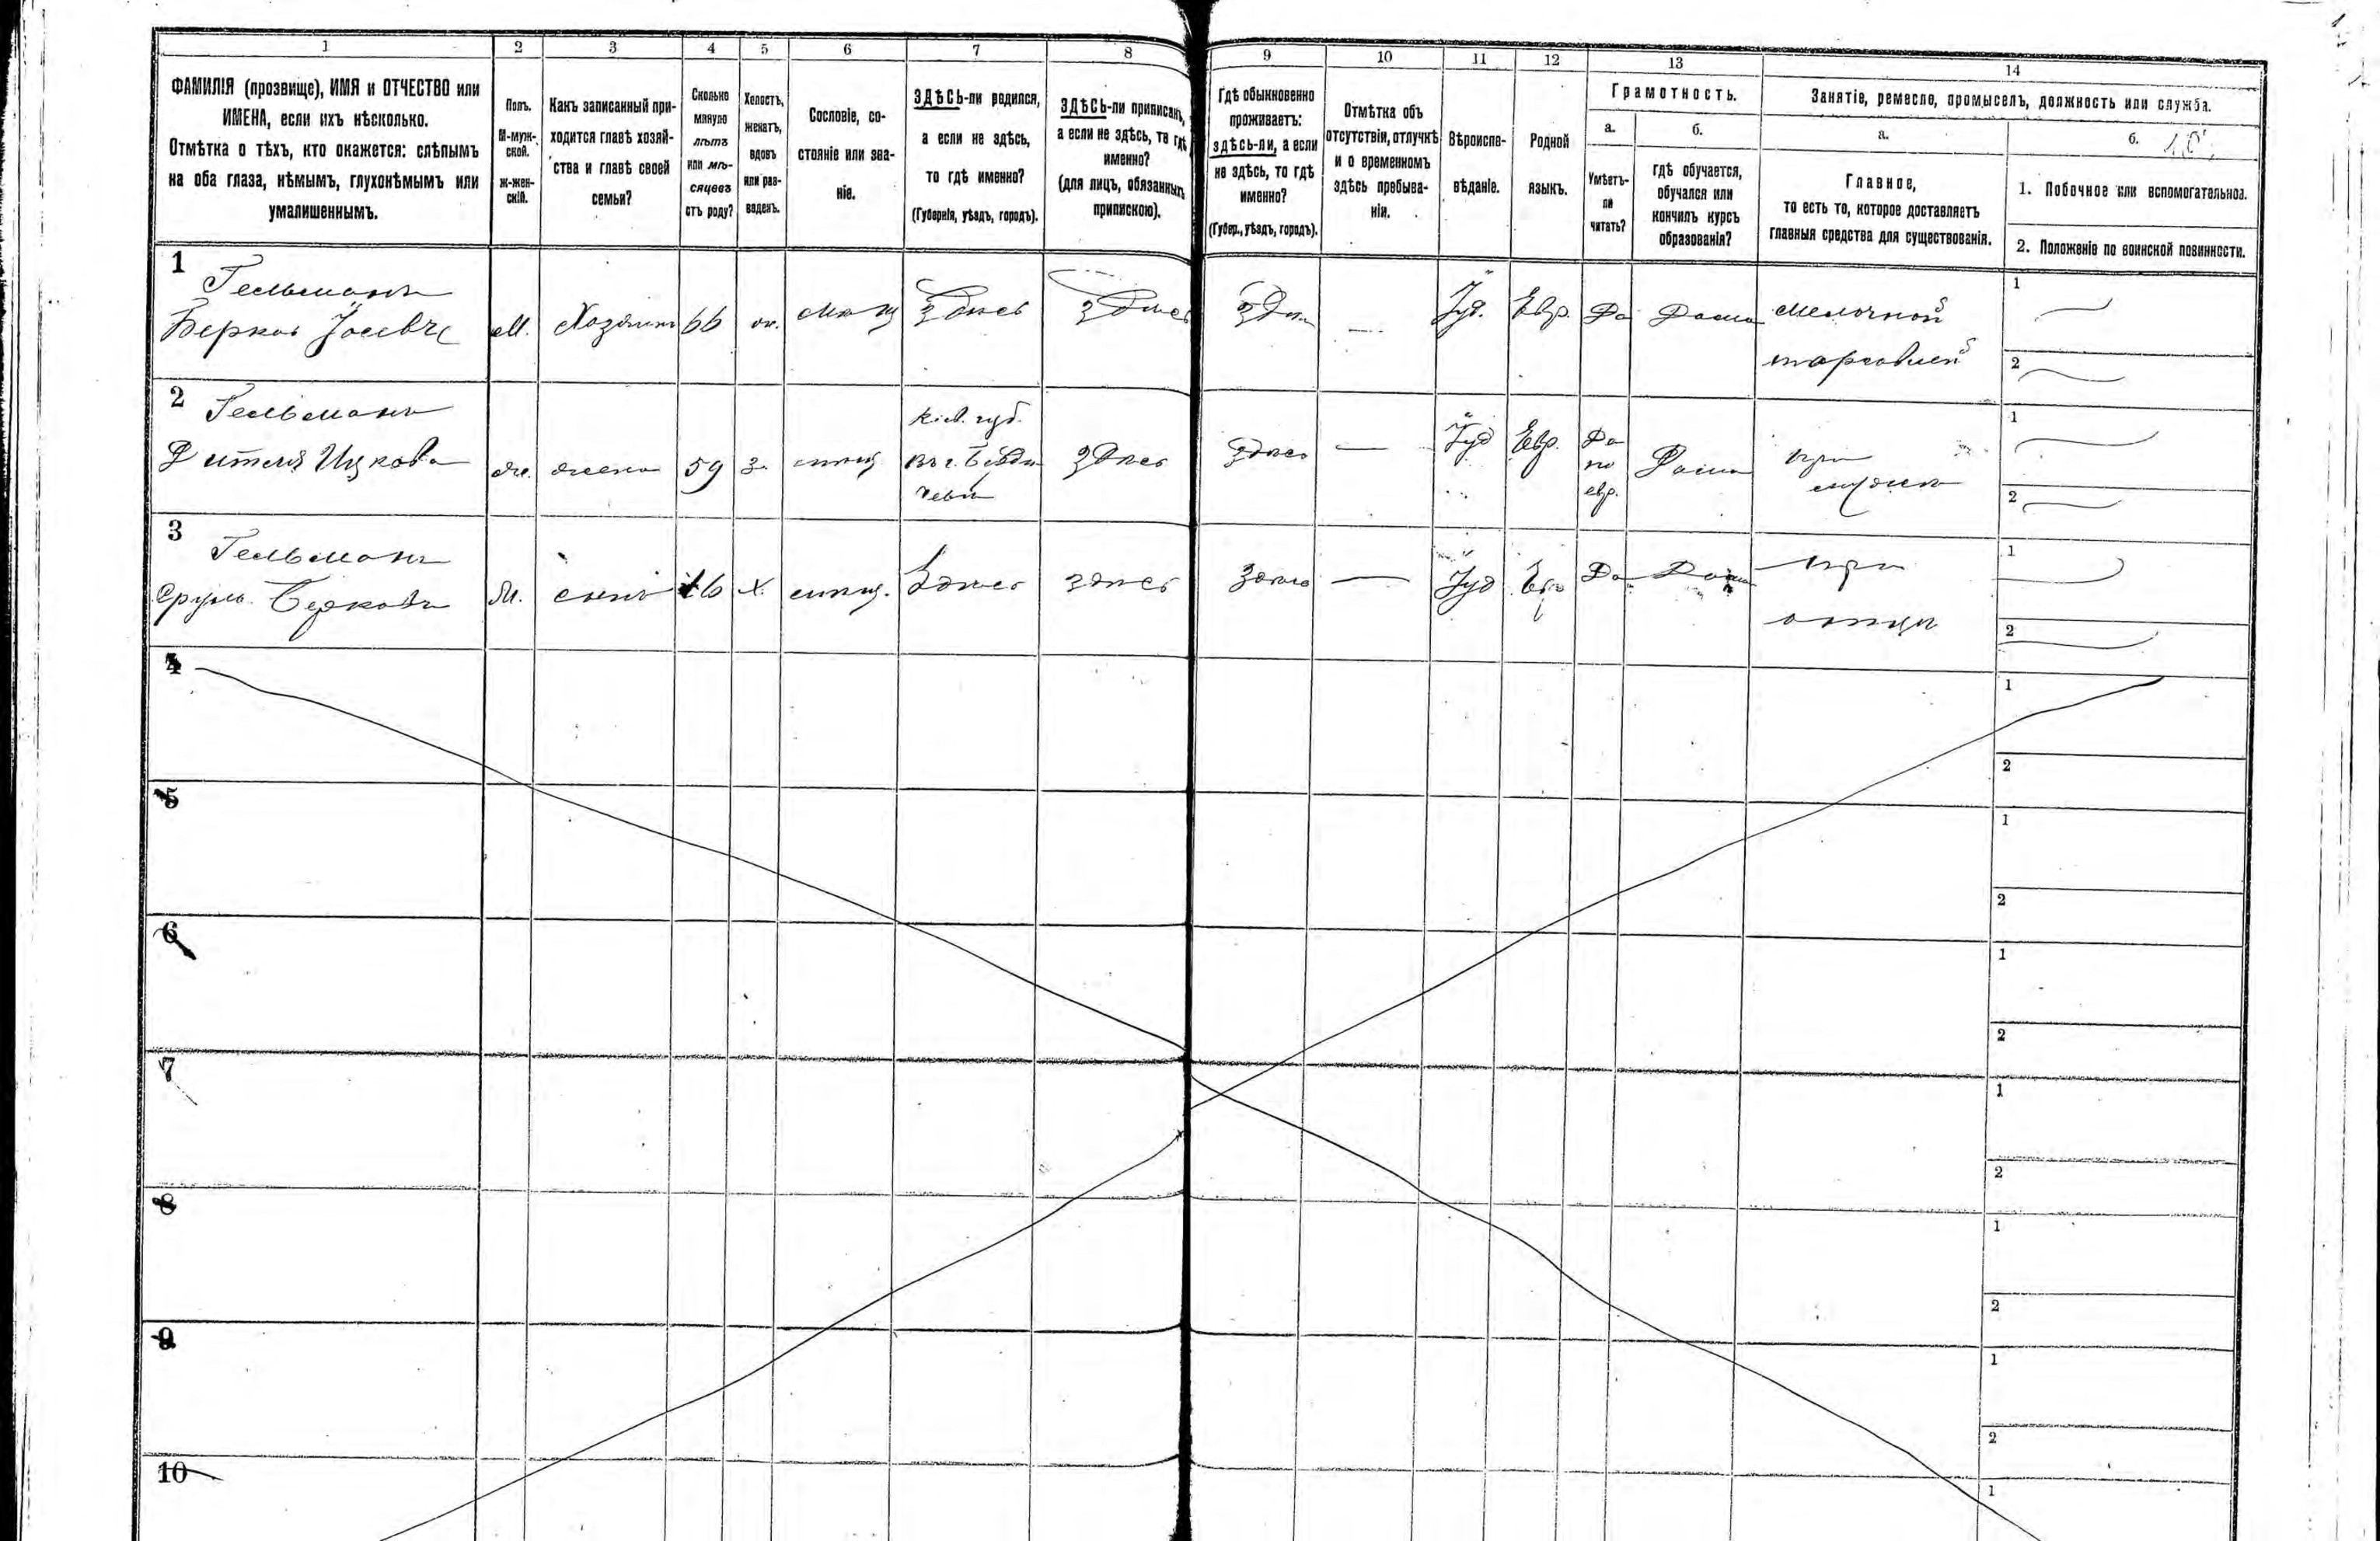 1 2 3 4 5 6 7 8 9 10 11 12 13 14
ФАМИЛІЯ (прозвище), ИМЯ и ОТЧЕСТВО или
ИМЕНА, если ихъ нѣсколько.
Отмѣтка о тѣхъ, кто окажется: слѣпымъ
на оба глаза, нѣмымъ, глухонѣмымъ или
умалишеннымъ.
Полъ.
М-муж-
ской.
Ж-жен-
скій.
Какъ записанный при-
ходится главѣ хозяй-
ства и главѣ своей
семьи?
Сколько
минуло
лѣтъ
или мѣ-
сяцевъ
отъ роду?
Холостъ,
женатъ,
вдовъ
или раз-
веденъ.
Сословіе, со-
стояніе или зва-
ніе.
ЗДѢСЬ-ли родился,
а если не здѣсь,
то гдѣ именно?
(Губернія, уѣздъ, городъ).
ЗДѢСЬ-ли приписанъ,
а если не здѣсь, то гдѣ
именно?
(для лицъ, обязанныхъ
припискою).
Гдѣ обыкновенно
проживаетъ:
здѣсь-ли, а если
не здѣсь, то гдѣ
именно?
(Губер., уѣздъ, городъ).
Отмѣтка объ
отсутствіи, отлучкѣ
и о временномъ
здѣсь пребыва-
ніи.
Вѣроиспо-
вѣданіе.
Родной
языкъ.
Грамотность.
а.
Умѣетъ-
ли
читать?
б.
гдѣ обучается,
обучался или
кончилъ курсъ
образованія?
Занятіе, ремесло, промыселъ, должность или служба.
а.
Главное,
то есть то, которое доставляетъ
главныя средства для существованія.
б.
1. Побочное или вспомогательное.
2. Положеніе по воинской повинности.
1
Гельманъ
Берко
М. Хозяинъ 66 ж. мѣщ здѣсь здѣсь здѣ — Іуд. Евр. Да Дома мелочной
торговлей
1
2
2
Гельманъ
Ицкова
ж. жена 59 з. мѣщ
Кіев. губ.
въ г. Берди
чевѣ
здѣсь здѣсь — Іуд Евр.
Да
по
евр.
Дома
при
мужѣ
1
2
3
Гельманъ
Сруль Берковъ
М. сынъ 16 х. мѣщ. здѣсь здѣсь здѣсь — Іуд Евр Да Дома при
отцѣ
1
2
4
1
2
5
1
2
6
1
2
7
1
2
8
1
2
9
1
2
10
1